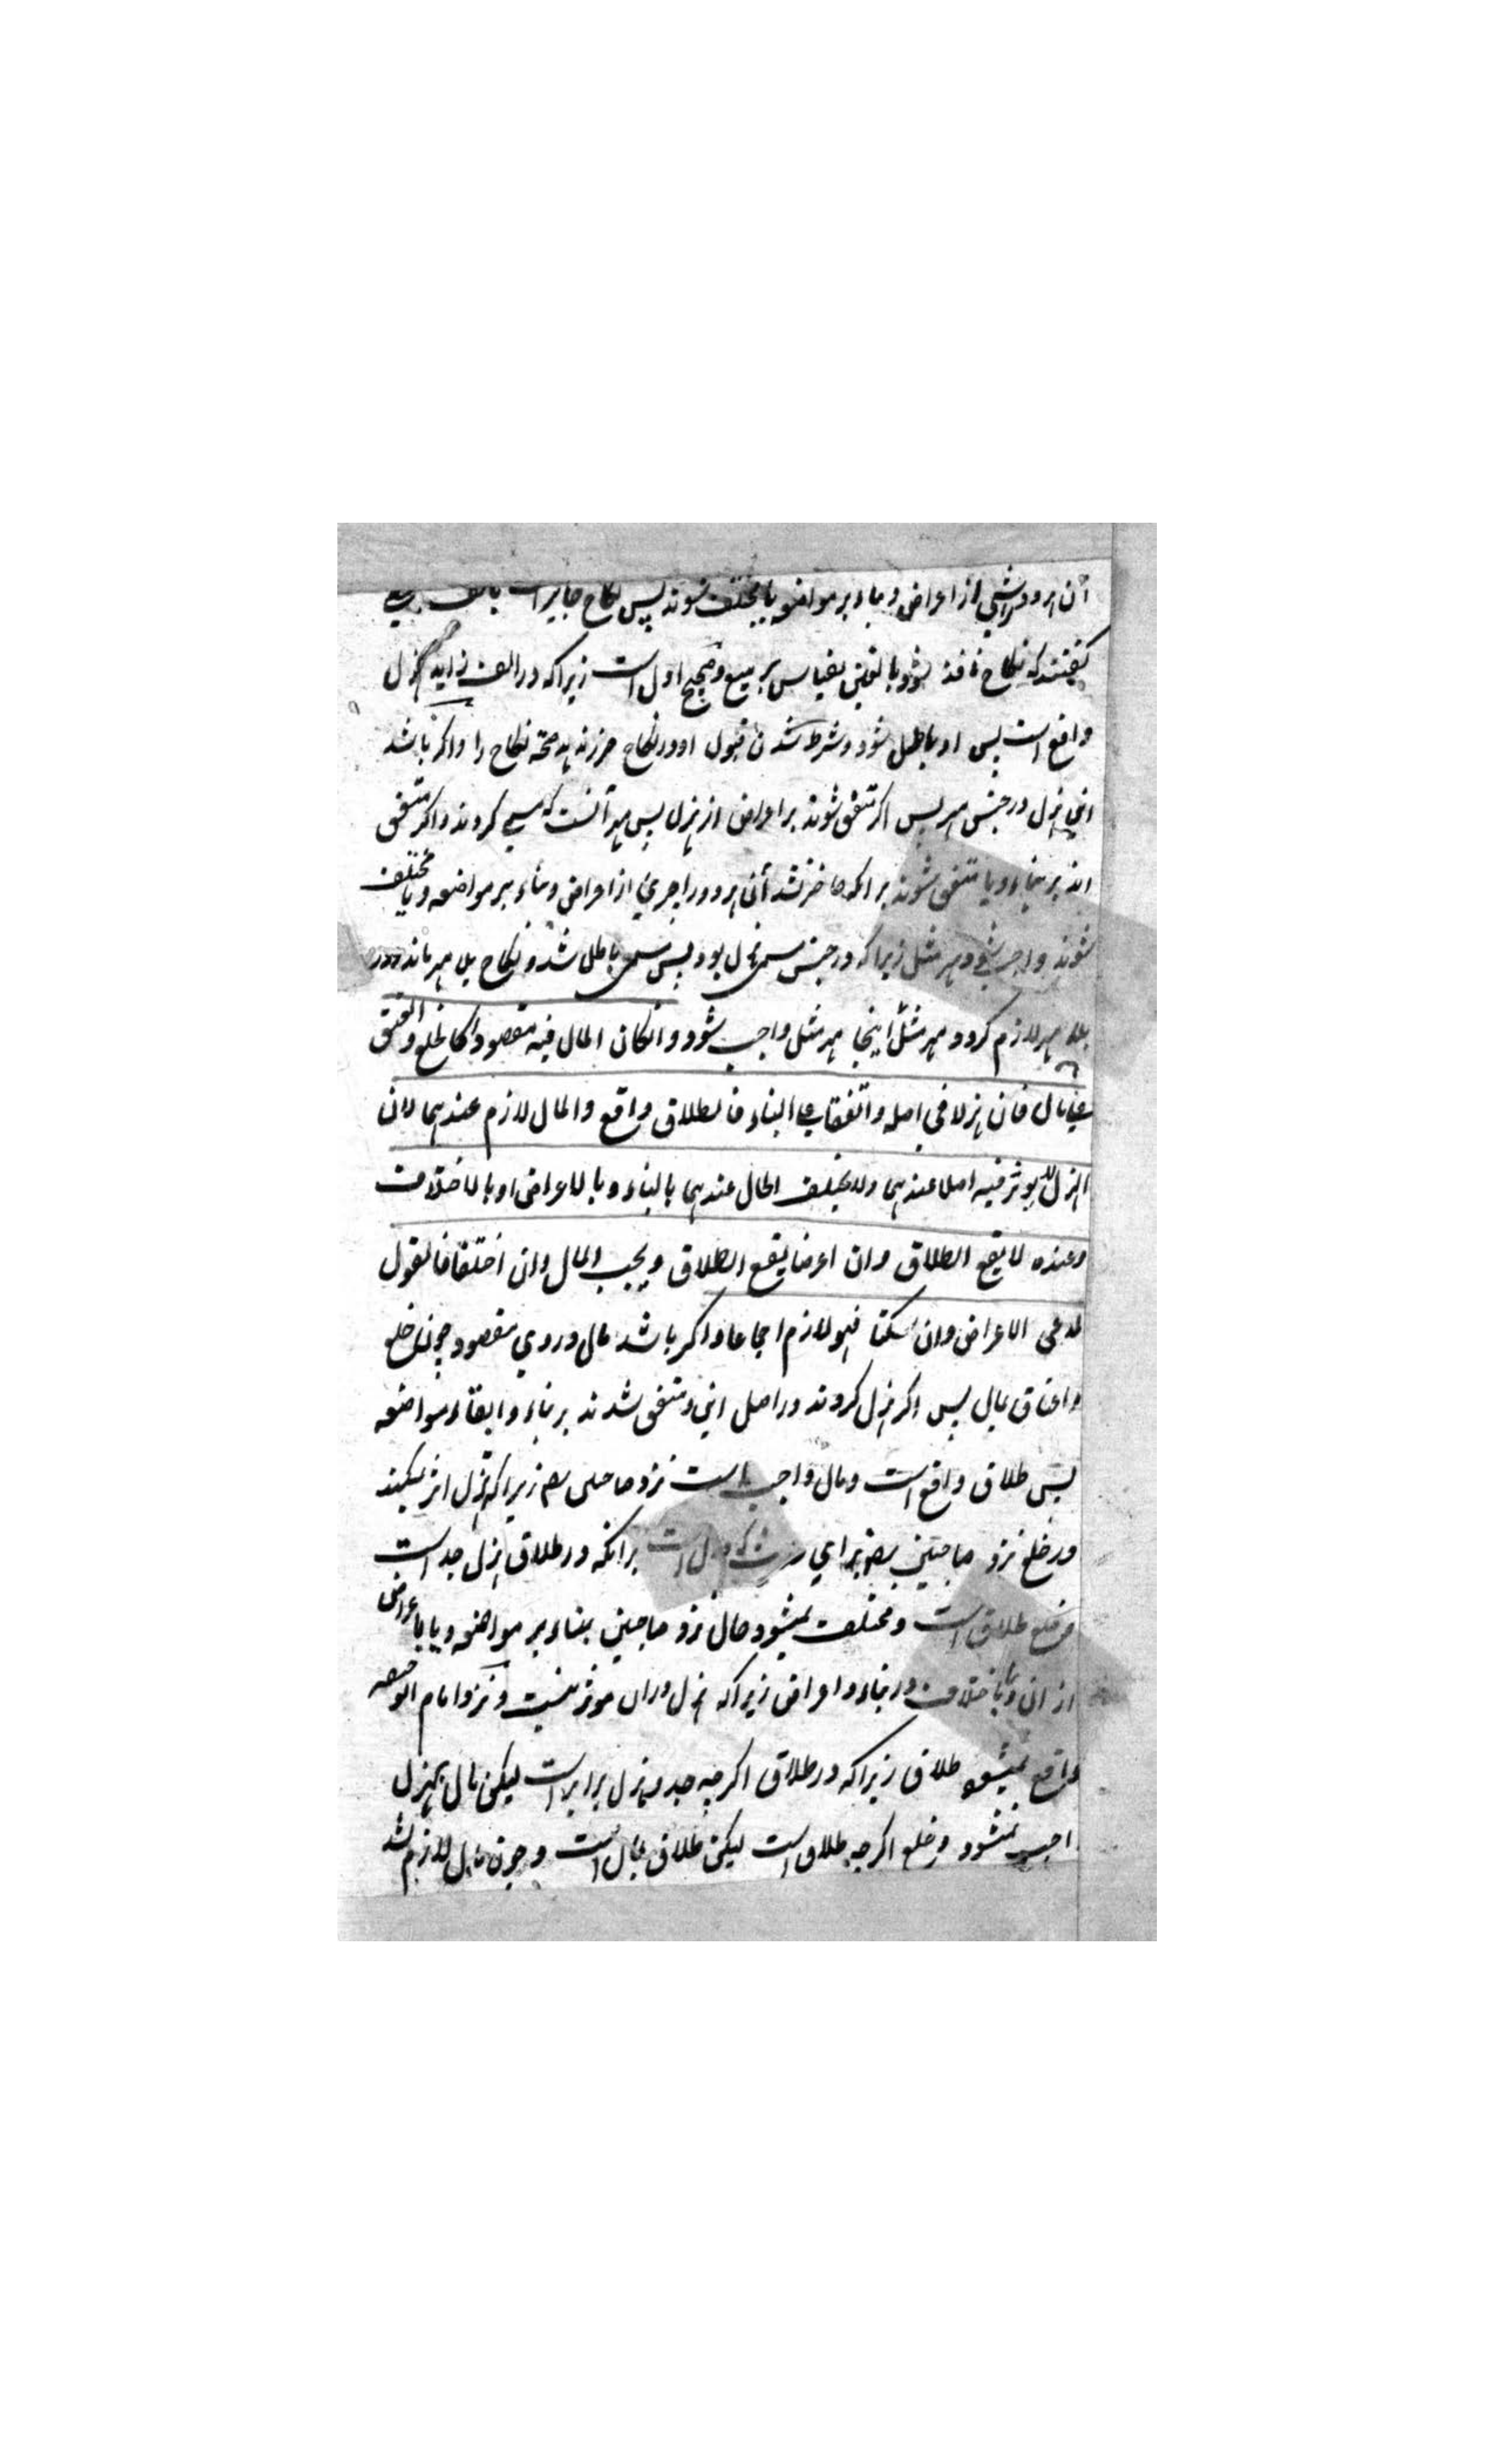 آن هر دو را شیی از اعراض و بناء بر مواضعه یا مختلف شوند پس نکاح جایز است بالف
گفتند که نکاح نافذ شود بالفین بقیاس بر بیع و صحیح اول است زیرا که در الف زاید هزل
واقع است پس او باطل شود و شرط شدن قبول او در نکاح ضرر ندهد صحة نکاح را و اگر باشد
این هزل در جنس مهر پس اگر متفق شوند بر اعراض از هزل پس مهر آنست که مسمی کردند و اگر متفق
اند بر بناء و یا متفق شوند بر انکه حاضر نشد آن هر دو را چیزی از اعراض و بناء بر مواضعه و یا مختلف
شوند واجب شود مهر مثل زیرا که در جنس مسمی هزل بود پس مسمی باطل شد و نکاح بلا مهر ماند و در
بلا مهر لازم گردد مهر مثل اینجا مهر مثل واجب شود و انکان المال فیه مقصودا کالخلع و العتق
علی مال فان هزلا فی اصله و اتفقا علی البناء فالطلاق واقع و المال لازم عندهما لان
الهزل لا یوثر فیه اصلا عندهما ولا یختلف الحال عندهما بالبناء و بالاعراض او بالاختلاف
وعنده لا یقع الطلاق وان اعرضا یقع الطلاق ویجب المال وان اختلفا فالقول
لمدعی الاعراض وان سکتا فهو لازم اجماعا و اگر باشد مال در وی مقصود چون خلع
و اعتاق بمال پس اگر هزل کردند در اصل این و متفق شدند بر بناء و ابقاء مواضعه
پس طلاق واقع است و مال واجب است نزد صاحبین رح زیرا که هزل اثر نمیکند
در خلع نزد صاحبین رح برای برانکه در طلاق هزل جد است
و خلع طلاق است و مختلف نمیشود حال نزد صاحبین ببناء بر مواضعه و یا باعراض
از ان و یا باختلاف در بناء و اعراض زیرا که هزل دران موثر نیست و نزد امام ابو حنیفه
واقع نمیشود طلاق زیرا که در طلاق اگرچه جد و هزل برابر است لیکن مال بهزل
واجب نمیشود و خلع اگرچه طلاق است لیکن طلاق بمال است و چون مال لازم نشد